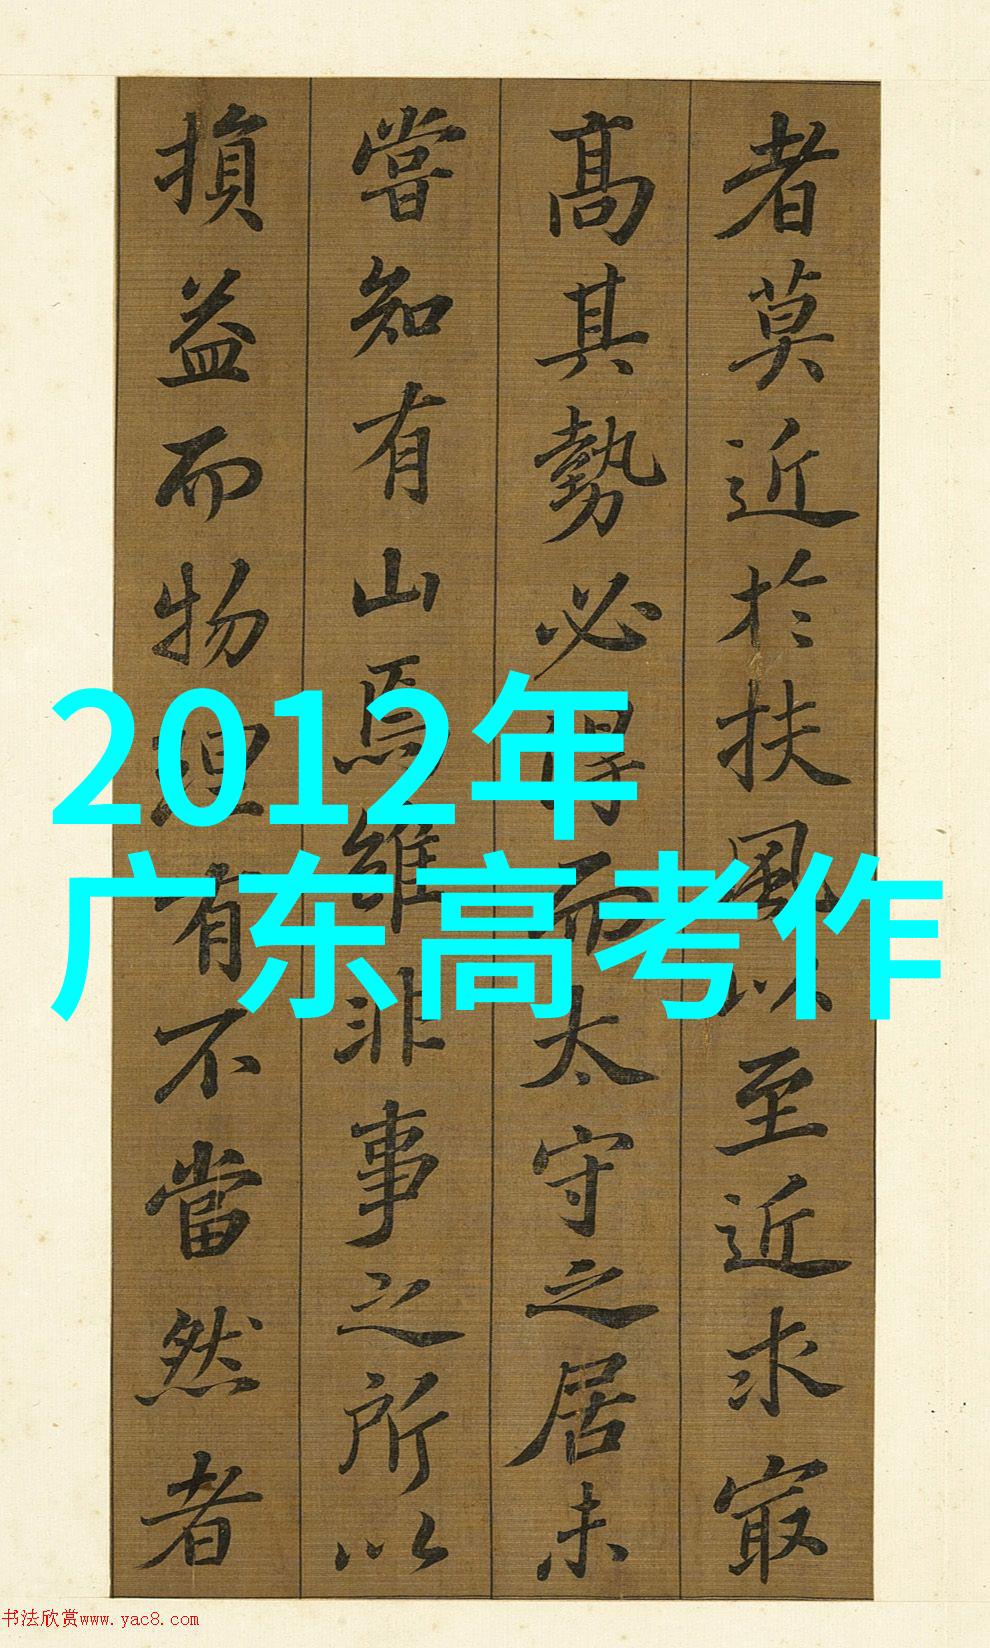 者莫近於扶風以至近求㝡
高其勢必得而太守之居未
嘗知有山焉雖非事之所以
損益而物理有不當然者
2012年
广东高考作
书法欣赏www.yac8.com